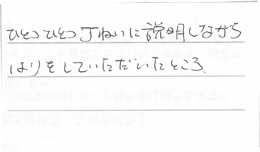 ひとつひとつ丁ねいに説明しながら
はりをしていただいたところ。